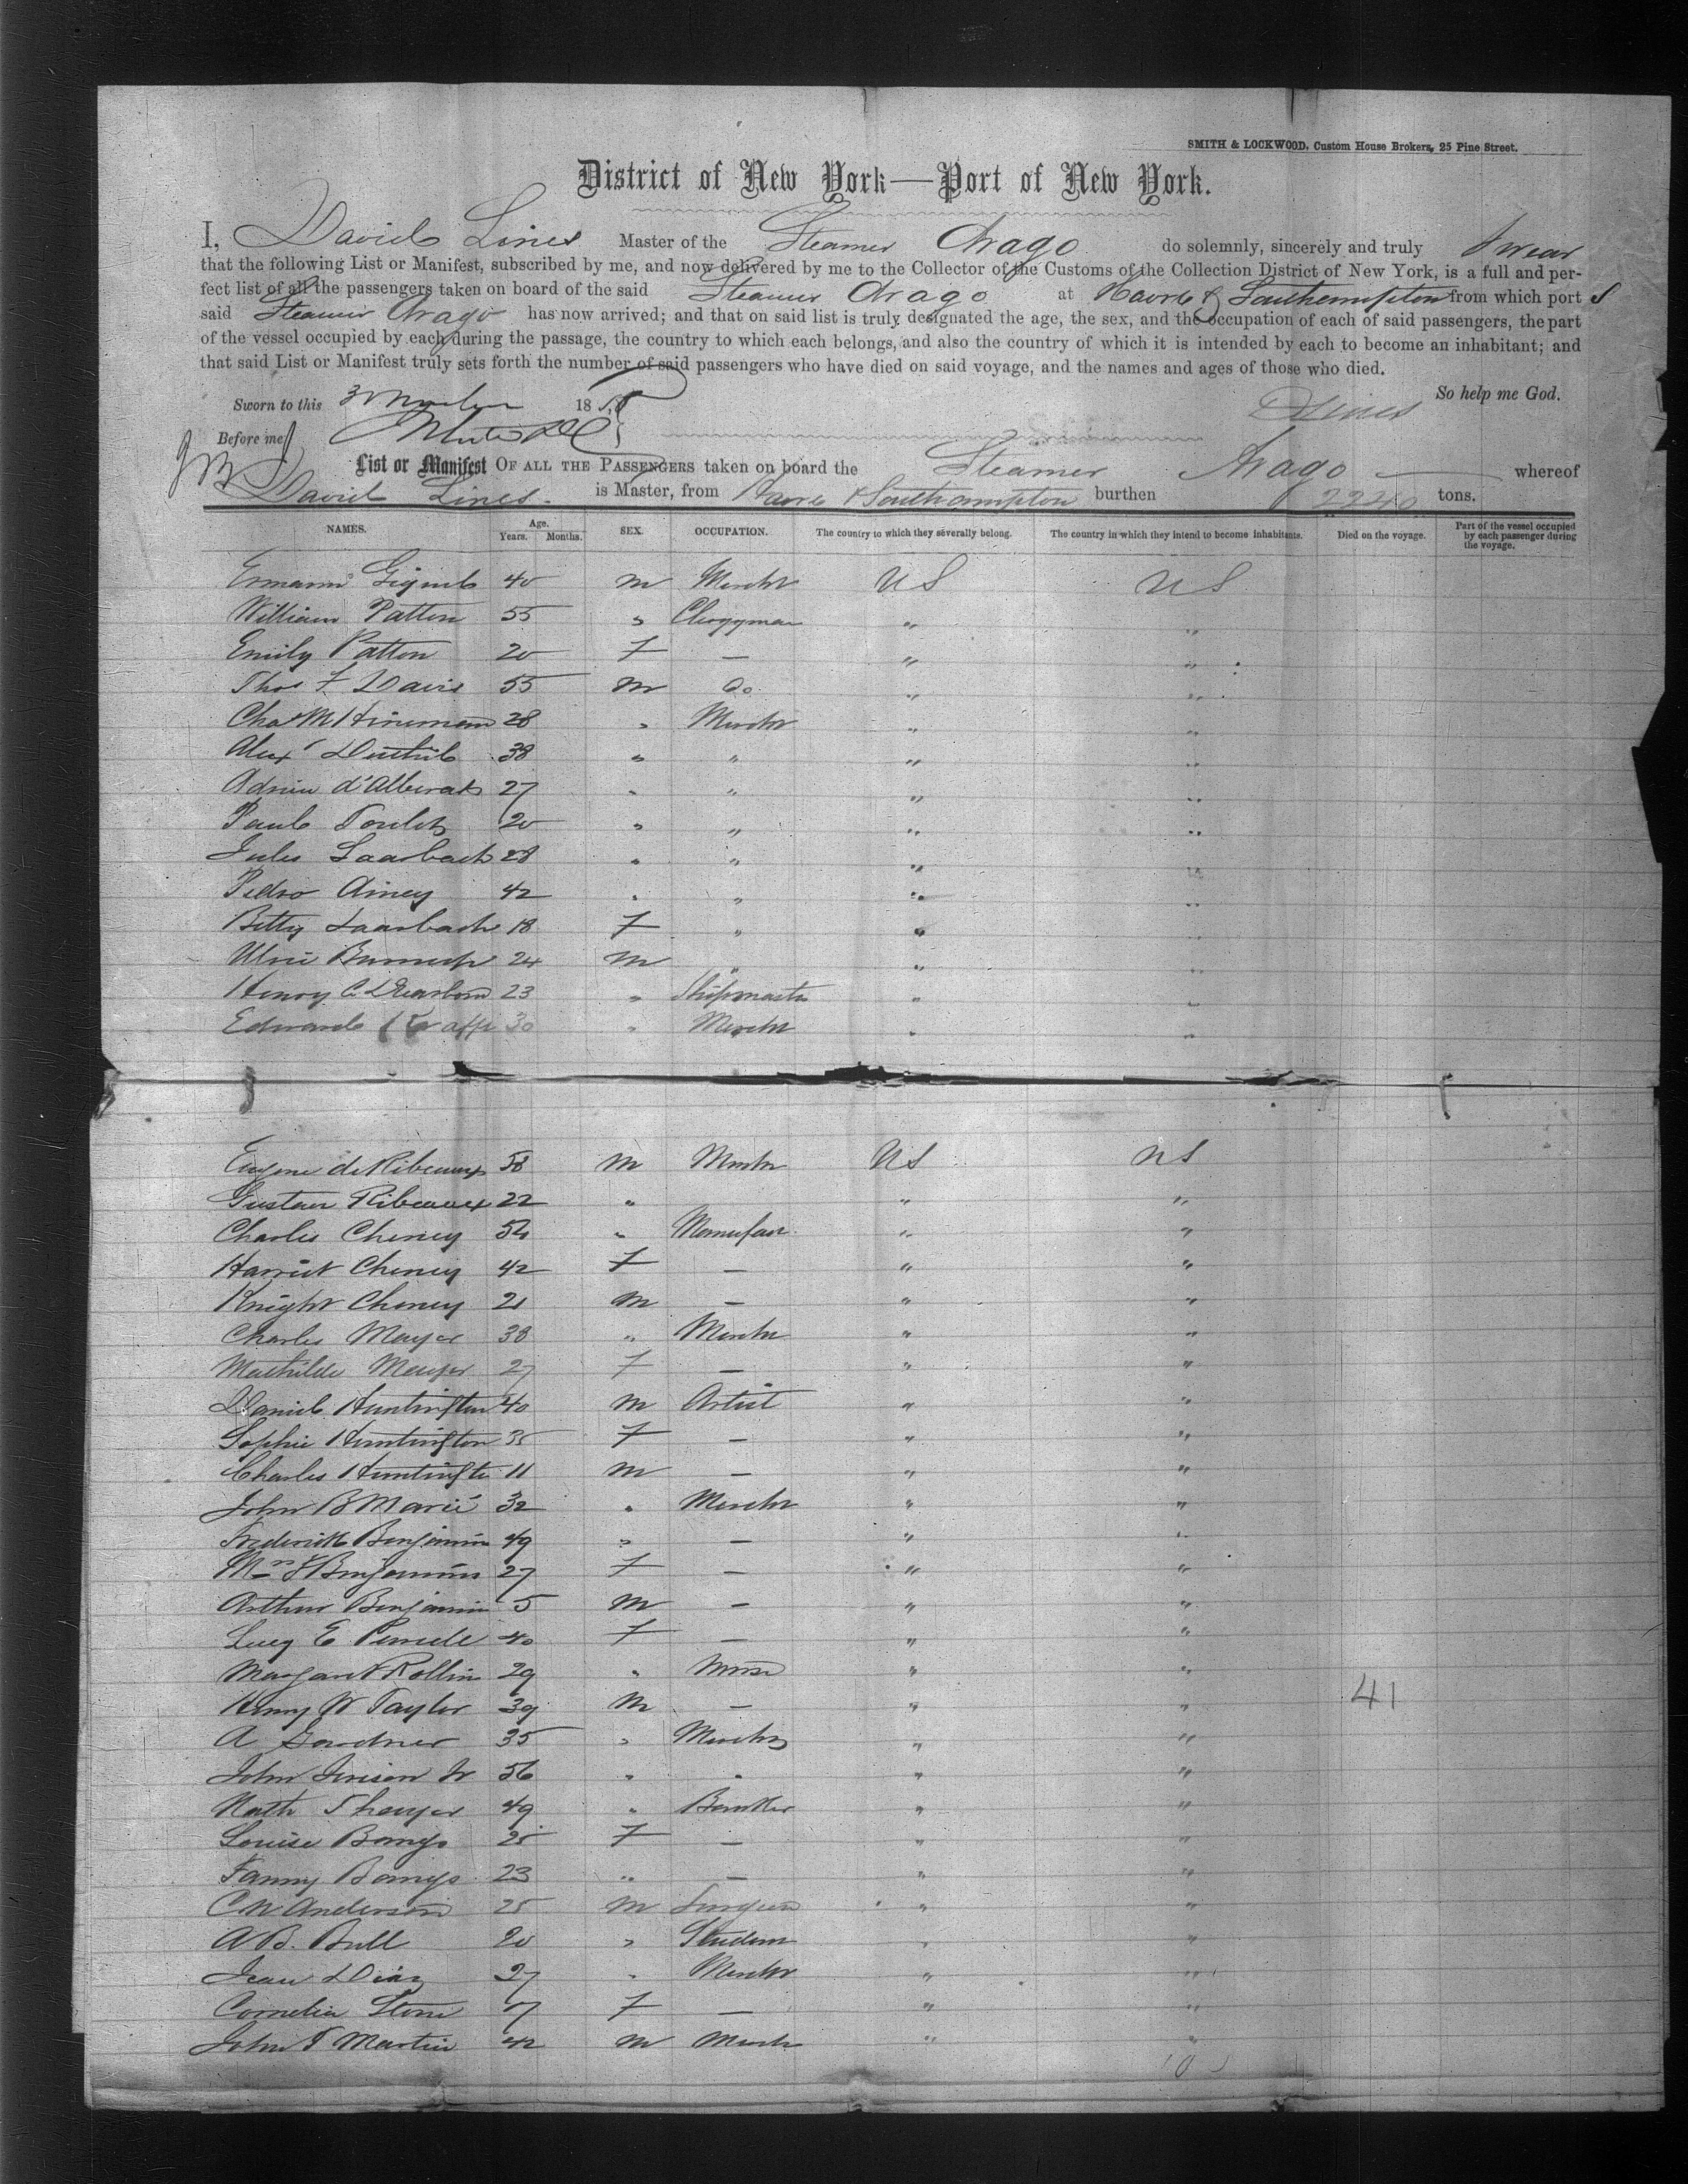 SMITH & LOCKWOOD, Custom House Brokers, 25 Pine Street.
District of New York—Port of New York.
I, David Lines Master of the Steamer Arago do solemnly, sincerely and truly swear
that the following List or Manifest, subscribed by me, and now delivered by me to the Collector of the Customs of the Collection District of New York, is a full and per-
fect list of all the passengers taken on board of the said Steamer Arago at Havre & Southampton from which port s
said Steamer Arago has now arrived; and that on said list is truly designated the age, the sex, and the occupation of each of said passengers, the part
of the vessel occupied by each during the passage, the country to which each belongs, and also the country of which it is intended by each to become an inhabitant; and
that said List or Manifest truly sets forth the number of said passengers who have died on said voyage, and the names and ages of those who died.
So help me God.
Sworn to this 18 58 D Lines
Before me
List or Manifest OF ALL THE PASSENGERS taken on board the Steamer Arago whereof
David Lines. is Master, from Havre & Southampton burthen 2240 tons.
NAMES. Age. Years. Months. SEX. OCCUPATION. The country to which they severally belong. The country in which they intend to become inhabitants. Died on the voyage. Part of the vessel occupied by each passenger during the voyage.
40 m Mercht US US
William Patton 55 " Clergyman " "
Emily Patton 20 F — " "
Thos F Davis 55 m do " "
Chas M Hineman 28 " Mercht " "
Alexr 38 " " " "
27 " " " "
Paul 20 " " " "
Jules Laarbach 28 " " " "
Pedro 42 " " " "
Betty Laarbach 18 F " " "
24 m " " "
Henry C Dearborn 23 " Shipmaster " "
Edward 30 " Mercht " "
Eugene de Ribeaux 58 m Mercht US US
Gustave Ribeaux 22 " " "
Charles Cheney 54 " Manufar " "
Harriet Cheney 42 F — " "
Knight Cheney 21 m — " "
Charles Mayer 38 " Mercht " "
Mathilde Mayer 27 F — " "
Daniel Huntington 40 m Artist " "
Sophie Huntington 35 F — " "
Charles Huntingto 11 m — " "
John B Marié 32 " Mercht " "
Frederick Benjamin 49 " — " "
Mrs F Benjamin 27 F — " "
Arthur Benjamin 5 m — " "
Lucy E 40 F — " "
Margaret Rollin 29 " Nurse " "
Henry W Taylor 39 m — " " 41
A Gardner 35 " Mercht " "
John Jr 56 " " " "
Nath Thayer 49 " Banker " "
Louise Bangs 25 F — " "
Fanny Bangs 23 " — " "
C W Anderson 25 m Surgeon " "
A B. Bull 20 " Student " "
Jean Diaz 27 " Mercht " "
Cornelia Stone 17 F — " "
John T Martin 42 m Mercht " "